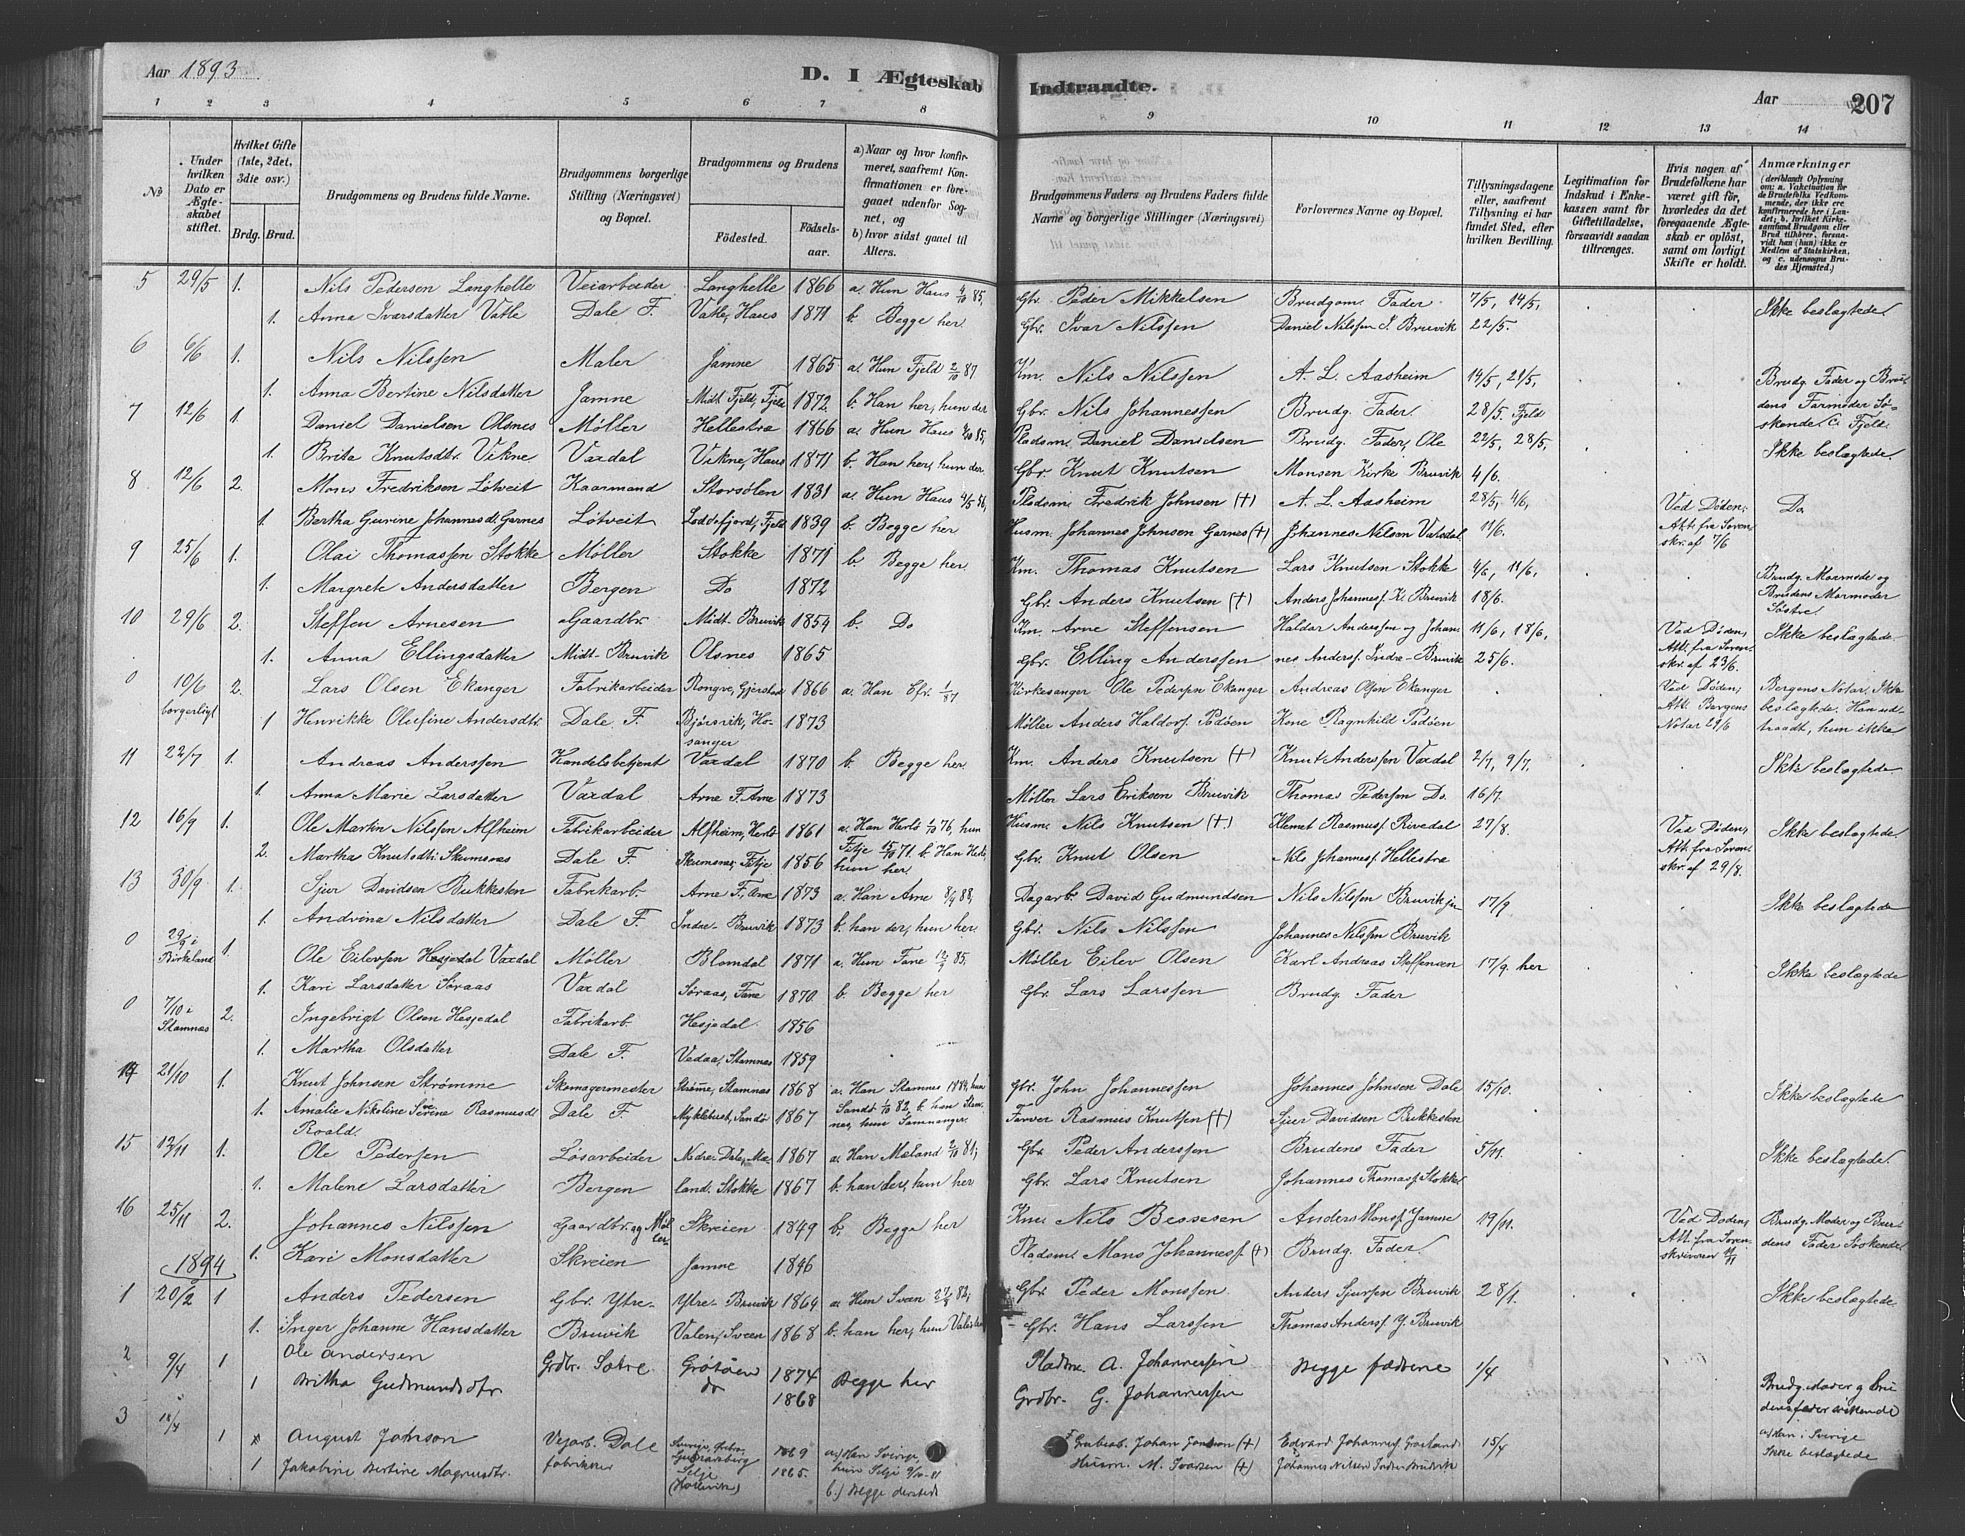 Aar 1893
D. I Ægteskab
Indtraadte.
Aar
207
1 2 3 4 5 6 7 8 9 10 11 12 13 14
No
Under hvilken Dato er Ægteskabet stiftet.
Hvilket Gifte (1ste, 2det, 3die osv.)
Brdg. Brud.
Brudgommens og Brudens fulde Navne.
Brudgommens borgerlige Stilling (Næringsvei) og Bopæl.
Brudgommens og Brudens
Fødested. Fødselsaar.
a) Naar og hvor konfirmeret, saafremt Konfirmationen er foregaaet udenfor Sognet, og
b) hvor sidst ganel til Alters.
Brudgommens Faders og Brudens Faders fulde Navne og borgerlige Stillinger (Næringsvei)
Forlovernes Navne og Bopæl.
Tillysningsdagene eller, saafremt Tillysning ei har fundet Sted, efter hvilken Bevilling.
Legitimation for Indskud i Enkekassen samt for Giftetilladelse, forsaavidt saadan tiltrænges.
Hvis nogen af Brudefolkene har været gift før, hvorledes da det foregaaende Ægteskab er opløst, samt om lovligt Skifte er holdt.
Anmærkninger
5 29/5 1. Nils Pedersen Langhelle Veiarbeider Langhelle 1866 a. Hun Haus 4/10 85, Gbr. Peder Mikkelsen Brudgom. Fader 7/5, 14/5, Ikke beslægtede
1. Anna Ivarsdatter Vatle Dale F. Vatle, Haus 1871 b. Begge her. Gbr. Ivar Nilssen Daniel Nilssen I. Bruvik 22/5.
6 6/6 1. Nils Nilssen Maler Jamne 1865 a. Hun Fjeld 2/10 87 Km. Nils Nilssen A. L. Aasheim 14/5, 21/5, Brudg. Fader og Bru-
1. Anna Bertine Nilsdatter Jamne Midt Fjeld, Fjeld 1872 b. Han her, hun der Gbr. Nils Johannessen Brudg. Fader. 28/5. Fjeld dens Farmoder Sø-
skende.
7 12/6 1. Daniel Danielsen Olsnes Møller Hellestræ 1866 a. Hun Haus 85, Pladsm. Daniel Danielsen Brudg. Fader, Ole 22/5, 28/5, Ikke beslægtede
1. Brita Knutsdtr. Vikne Vaxdal Vikne, Haus 1871 b. Han her, hun der Gbr. Knut Knutsen Monsen Kirke Bruvik 4/6.
8 12/6 2. Mons Fredriksen Løtveit Kaarmand Storsølen 1831 a. Hun Haus 4/5 56, Pladsm. Fredrik Johnsen (+) A. L. Aasheim 28/5, 4/6, Ved Døden, Do
1. Bertha Gurine Johannesdt. Garnes Løtveit Loddefjord, Fjeld 1839 b. Begge her Husm. Johannes Johnsen Garnes (+) Johannes Nilsen Vatsdal 11/6. Att. fra Soren-
skr. af 7/6
9 25/6 1. Olai Thomassen Stokke Møller Stokke 1871 b. Begge her. Km. Thomas Knutsen Lars Knutsen Stokke 4/6, 11/6, Brudg. Mormode og
1. Margrete Andersdatter Bergen Do 1872 Gbr. Anders Knutsen (+) Anders Johannesf. Kl. Bruvik 18/6. Brudens Mormoder
Søstre
10 29/6 2. Steffen Arnesen Gaardbr. Midt-Bruvik 1854 b. Do Km. Arne Steffensen Haldor Anderssen og Johan 11/6, 18/6, Ved Døden, Ikke beslægtede
1. Anna Ellingsdatter Midt-Bruvik Olsnes 1865 Gbr. Elling Anderssen nes Andersf. Indre-Bruvik 25/6. Att. fra Soren-
skr. af 23/6.
0 10/6 borgerligt 2. Lars Olsen Ekanger Fabrikarbeider Rongve, Gjerstad 1866 a. Han Efr. 1/87 Kirkesanger Ole Pedersen Ekanger Andreas Olsen Ekanger Ved Døden, Bergens Notar. Ikke
1 Henrikke Olufine Andersdtr. Dale F. Bjørsvik, Ho-
sanger 1873 Møller Anders Haldorf. Padøen Kone Ragnhild Padøen Att. Bergens beslægtede. Han ud-
Notar 29/6 traadt, hun ikke
11 22/7 1. Andreas Anderssen Handelsbetjent Vaxdal 1870 b. Begge her. Km. Anders Knutsen (+) Knut Anderssen Vaxdal 2/7, 9/7, Ikke beslægtede
1. Anna Marie Larsdatter Vaxdal Arne F. Arne 1873 Møller Lars Eriksen Bruvik Thomas Pedersen Do. 16/7.
12 16/9 1. Ole Martin Nilssen Alfheim Fabrikarbeider Alfheim, Herlø 1861 a. Han Herlø 1/10 76, hun Husm. Nils Knutsen (+) Klemet Rasmusf. Rivedal 27/8. Ved Døden, Ikke beslægtede
2. Martha Knutsdt. Skumsnas Dale F. Skumsnæs, Fitje 1856 Fitje 15/10 71. b. Han Herlø, hun her. Gbr. Knut Olsen Nils Johannesf. Hellestræ Att. fra Soren-
skr. af 29/8.
13 30/9 1. Sjur Davidsen Bukkesten Fabrikarb. Arne F, Arne 1873 a. Han Arne 88, Dagarb. David Gudmundsen Nils Nilssen Bruvik jun 17/9. Ikke beslægtede
1. Andrina Nilsdatter Dale F. Indre-Bruvik 1873 b. han der, hun her. Gbr. Nils Nilssen Johannes Nilssen Bruvik
0 29/9 i Birkeland 1. Ole Eilevsen Hesjedal Vaxdal Møller Blomdal 1871 a. Hun Fane 85. Møller Eilev Olsen Karl Andreas Steffensen 17/9. her Ikke beslægtede
1. Kari Larsdatter Søraas Vaxdal Søraas, Fane 1870 b. Begge her Gbr. Lars Larssen Brudg. Fader
0 7/10 i Stamnæs 2. Ingebrigt Olsen Hesjedal Fabrikarb. Hesjedal. 1856
1. Martha Olsdatter Dale F. Vedaa, Stamnæs 1859
14 21/10 1. Knut Johnsen Strømme Skomagermester Strøme, Stamnæs 1868 a. Han Stamnes 1884, hun Gbr. John Johannessen Johannes Johnsen Dale 15/10. Ikke beslægtede
1. Amalie Nikoline Severine Rasmusdt. Roald. Dale F. Myklebust, Sandø 1867 Sandø 1/10 82, b. han Stam-
nes, hun Samnanger. Farver Rasmus Knutsen (+) Sjur Davidsen Bukkesten
15 12/11 1. Ole Pedersen Løsarbeider Nedre-Dale, Mæ- 1867 a. Han Mæland 81; Gbr. Peder Anderssen Brudens Fader 5/11. Ikke beslægtede.
1. Malene Larsdatter Bergen land. Stokke 1867 b. han der, hun her Gbr. Lars Knutsen Johannes Thomasf. Stokke
16 25/11 2. Johannes Nilssen Gaardbr. og Møl-
ler Skreien 1849 b. Begge her Km. Nils Bessesen Anders Monsf. Jamne 19/11. Ved Døden, Brudg. Moder og Bru-
1. Kari Monsdatter Skreien Jamne 1846 Pladsm. Mons Johannesf. (+) Brudg. Fader. Att. fra Soren-
skriveren dens Fader Søskende
1894
1 20/2 1 Anders Pedersen Gbr. Ytre- Ytre-Bruvik 1864 a. Hun Sveen 82, Gbr. Peder Monssen Anders Sjursen Bruvik 28/1. Ikke beslægtede
1. Inger Johanne Hansdatter Bruvik Valen, Sveen 1868 b. han her, hun Valestrand Gbr. Hans Larssen Thomas Andersf. Y. Bruvik
2 9/4 1 Ole Andersen Grdbr. Sætre Grøtøen 1874 Begge her Pladsm. A. Johannessen Begge fædrene 1/4
1 Britha Gudmundsdtr. do 1868 Grdbr. G. Johannessen Brudg. Moder og Bru
densfader søskende
3 18/4 1 August Johnson Vejarb. Dale Sverige 1869 a) Han Sverige, Johan Jonsson (+) Edvard Johannesf. 15/4 a) han i Sverige
1 Jakobine Bertine Magnusdtr. fabrikker Selje 1865. hun Selje 81 Husm. M. Ivarsen (+) Johannes Nilsen Indre Bruvik Ikke beslægtede
b.) Begge dersteds